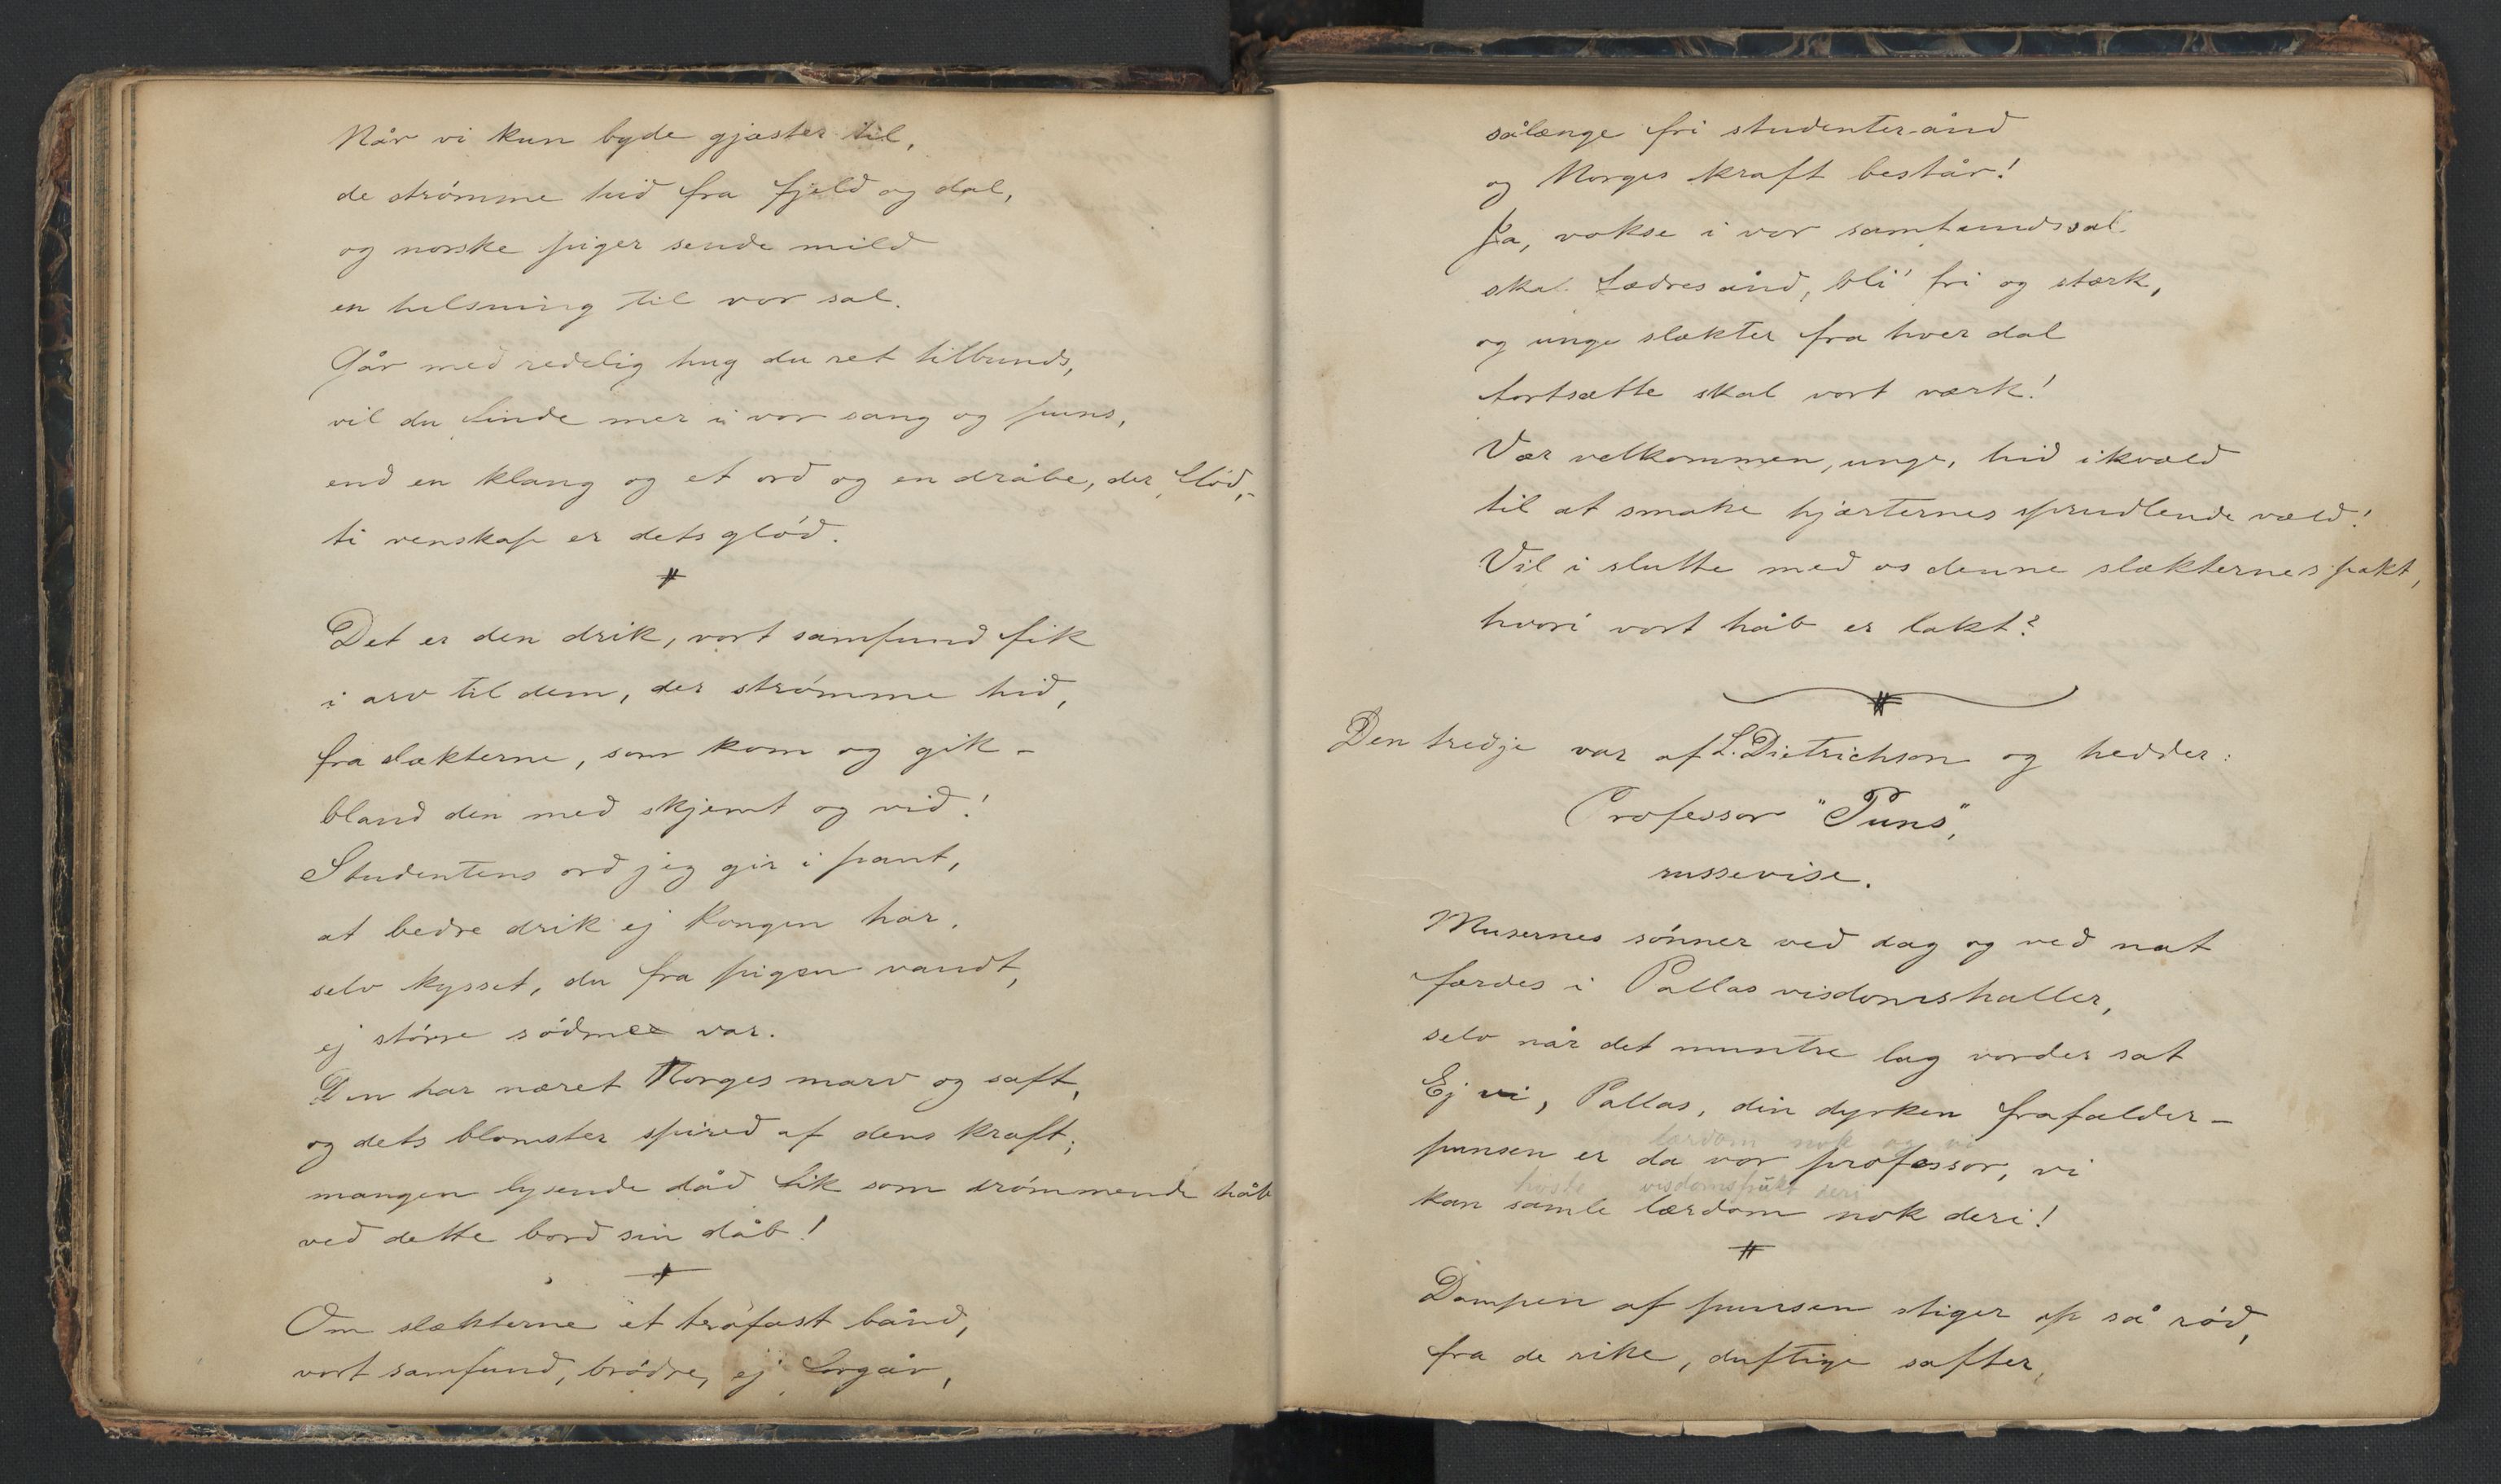 Når vi kun byde gjæster til,
de strömme hid fra fjeld og dal,
og norske piger sende mild
en helsning til vor sal.
Går med redelig hug du ret tilbunds,
vil du finde mer i vor sang og puns,
end en klang og et ord og en dråbe, der flöd,-
ti venskap er dets glöd.
Det er den drik, vort samfund fik
i arv til dem, der strömme hid,
fra slækterne, som kom og gik –
bland den med skjemt og vid!
Studentens ord jeg gir i pant,
at bedre drik ej kongen har,
selv kysset, du fra pigen vandt,
ej större södme var.
Den har næret Norges marv og saft,
og dets blomster spired af dens kraft;
mangen lysende dåd fik som drömmende håb
ved dette bord sin dåb!
Om slækterne et trofast bånd,
vort samfund, brödre, ej forgår,
sålænge fri studenterånd
og Norges kraft består!
Ja, vokse i vor samfundssal
skal fædres ånd, bli' fri og stærk,
og unge slækter fra hver dal
fortsætte skal vort værk!
Vær velkommen, unge, hid ikvæld
til at smake hjærternes sprudlende væld!
Vil i slutte med os denne slækternes pakt,
hvori vort håb er lakt?
Den tredje var af L. Dietrichson og hedder:
Professor "Puns",
russevise.
Musernes sönner ved dag og ved nat
færdes i Pallas visdomshaller,
selv når det muntre lag vorder sat
Ej vi, Pallas, din dyrken frafalder –
lærdom nok og vi
punsen er da vor professor, vi
høste visdomsfrukt deri
kan samle lærdom nok deri!
Dampen af punsen stiger op så röd,
fra de rike, duftige safter,